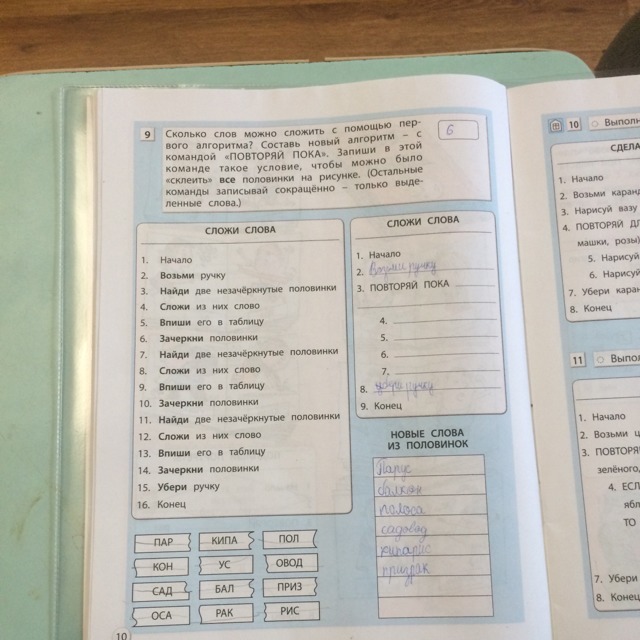 9
Сколько слов можно сложить с помощью пер-
вого алгоритма? Составь новый алгоритм – с
командой «ПОВТОРЯЙ ПОКА». Запиши в этой
команде такое условие, чтобы можно было
«склеить» все половинки на рисунке. (Остальные
команды записывай сокращённо – только выде-
ленные слова.)
6
СЛОЖИ СЛОВА
1. Начало
2. Возьми ручку
3. Найди две незачёркнутые половинки
4. Сложи из них слово
5. Впиши его в таблицу
6. Зачеркни половинки
7. Найди две незачёркнутые половинки
8. Сложи из них слово
9. Впиши его в таблицу
10. Зачеркни половинки
11. Найди две незачёркнутые половинки
12. Сложи из них слово
13. Впиши его в таблицу
14. Зачеркни половинки
15. Убери ручку
16. Конец
СЛОЖИ СЛОВА
1. Начало
2. Возьми ручку
3. ПОВТОРЯЙ ПОКА
4.
5.
6.
7.
8. убери ручку
9. Конец
НОВЫЕ СЛОВА
ИЗ ПОЛОВИНОК
Парус
балкон
полоса
садовод
кипарис
призрак
ПАР КИПА ПОЛ
КОН УС ОВОД
САД БАЛ ПРИЗ
ОСА РАК РИС
10
10 Выполн
СДЕЛА
1. Начало
2. Возьми каранд
3. Нарисуй вазу
4. ПОВТОРЯЙ ДЛ
машки, розы)
5. Нарисуй
6. Нарисуй
7. Убери каран
8. Конец
11 Выпол
1. Начало
2. Возьми ц
3. ПОВТОРЯ
зелёного,
4. ЕСЛ
ябл
ТО
7. Убери
8. Конец